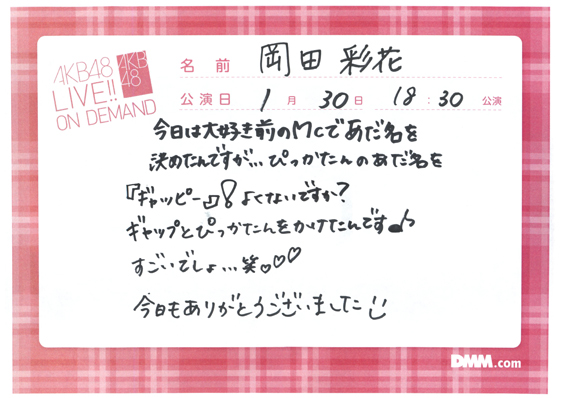 AKB48
LIVE!!
ON DEMAND
AKB
48
名前 岡田彩花
公演日 1月30日 18:30公演
今日は大好き前のMCであだ名を
決めたんですが…ぴっかたんのあだ名を
『ギャッピー』!よくないですか?
ギャップとぴっかたんをかけたんです♪
すごいでしょ…笑♡♡♡
今日もありがとうございました
DMM.com